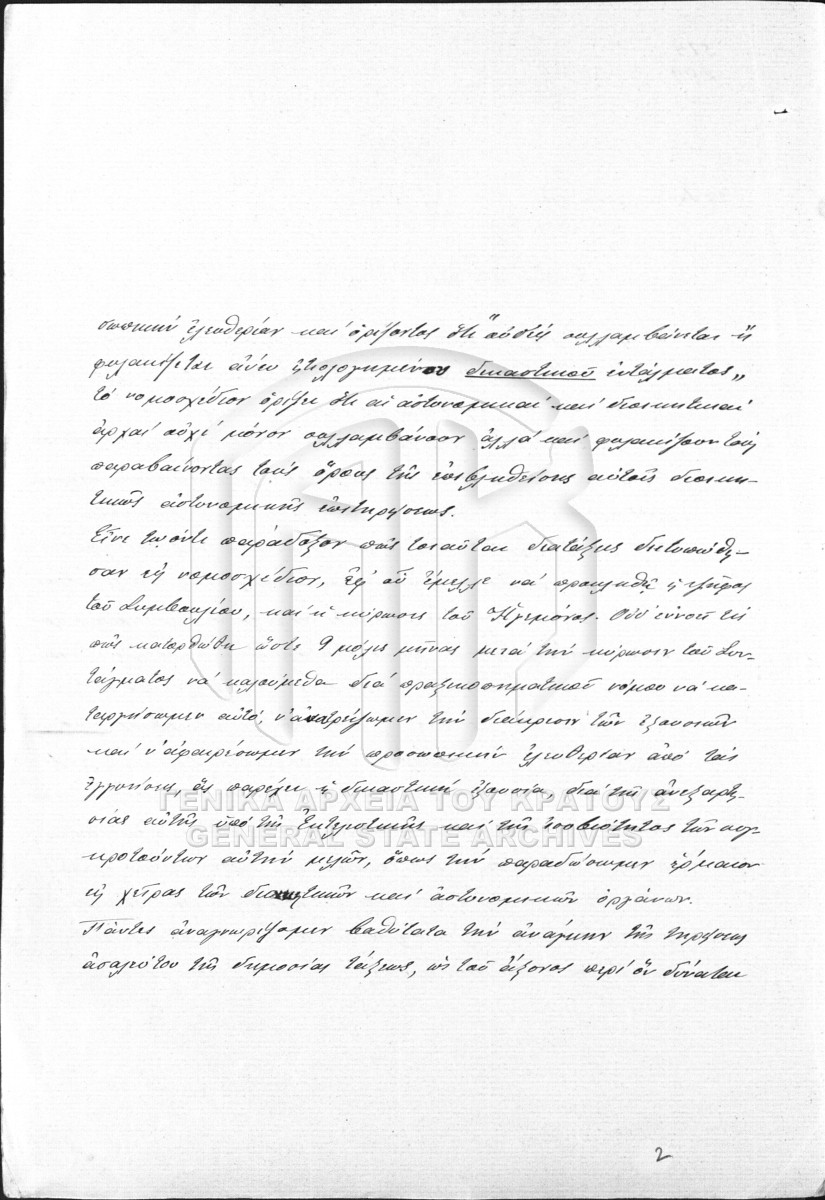 σωπικὴν ἐλευθερίαν καὶ ὁρίζοντος ὅτι "οὐδεὶς συλλαμβάνεται ἢ
φυλακίζεται ἄνευ ᾐτιολογημένου δικαστικοῦ ἐντάλματος"
τὸ νομοσχέδιον ὁρίζει ὅτι αἱ ἀστυνομικαὶ καὶ διοικητικαὶ
ἀρχαὶ οὐχὶ μόνον συλλαμβάνουν ἀλλὰ καὶ φυλακίζουν τοὺς
παραβαίνοντας τοὺς ὅρους τῆς ἐπιβληθείσης αὐτοῖς διοικη-
τικῶς ἀστυνομικῆς ἐπιτηρήσεως.
Εἶνε τῷ ὄντι παράδοξον πῶς τοιαῦται διατάξεις διετυπώθη-
σαν εἰς νομοσχέδιον, ἐφ' οὗ ἔμελλε νὰ προκληθῇ ἡ ψῆφος
τοῦ Συμβουλίου, καὶ ἡ κύρωσις τοῦ Ἡγεμόνος. Οὐδ' ἐννοεῖ τις
πῶς κατορθώθη ὥστε 9 μόλις μῆνας μετὰ τὴν κύρωσιν τοῦ Συν-
τάγματος νὰ καλούμεθα διὰ πραξικοπηματικοῦ νόμου νὰ κα-
ταργήσωμεν αὐτό, ν' ἀνατρέψωμεν τὴν διάκρισιν τῶν ἐξουσιῶν
καὶ ν' ἀφαιρέσωμεν τὴν προσωπικὴν ἐλευθερίαν ἀπὸ τὰς
ἐγγυήσεις, ἃς παρέχει ἡ δικαστικὴ ἐξουσία, διὰ τῆς ἀνεξαρτη-
σίας αὐτῆς ὑπὸ τῆς Ἐκτελεστικῆς καὶ τῆς ἰσοβιότητος τῶν συγ-
κροτούντων αὐτὴν μελῶν, ὅπως τὴν παραδώσωμεν ἕρμαιον
εἰς χεῖρας τῶν διοικητικῶν καὶ ἀστυνομικῶν ὀργάνων.
Πάντες ἀναγνωρίζομεν βαθύτατα τὴν ἀνάγκην τῆς τηρήσεως
ἀσαλεύτου τῆς δημοσίας τάξεως, ὡς τοῦ ἄξονος περὶ ὃν δύναται
2
ΓΕΝΙΚΑ ΑΡΧΕΙΑ ΤΟΥ ΚΡΑΤΟΥΣ
GENERAL STATE ARCHIVES